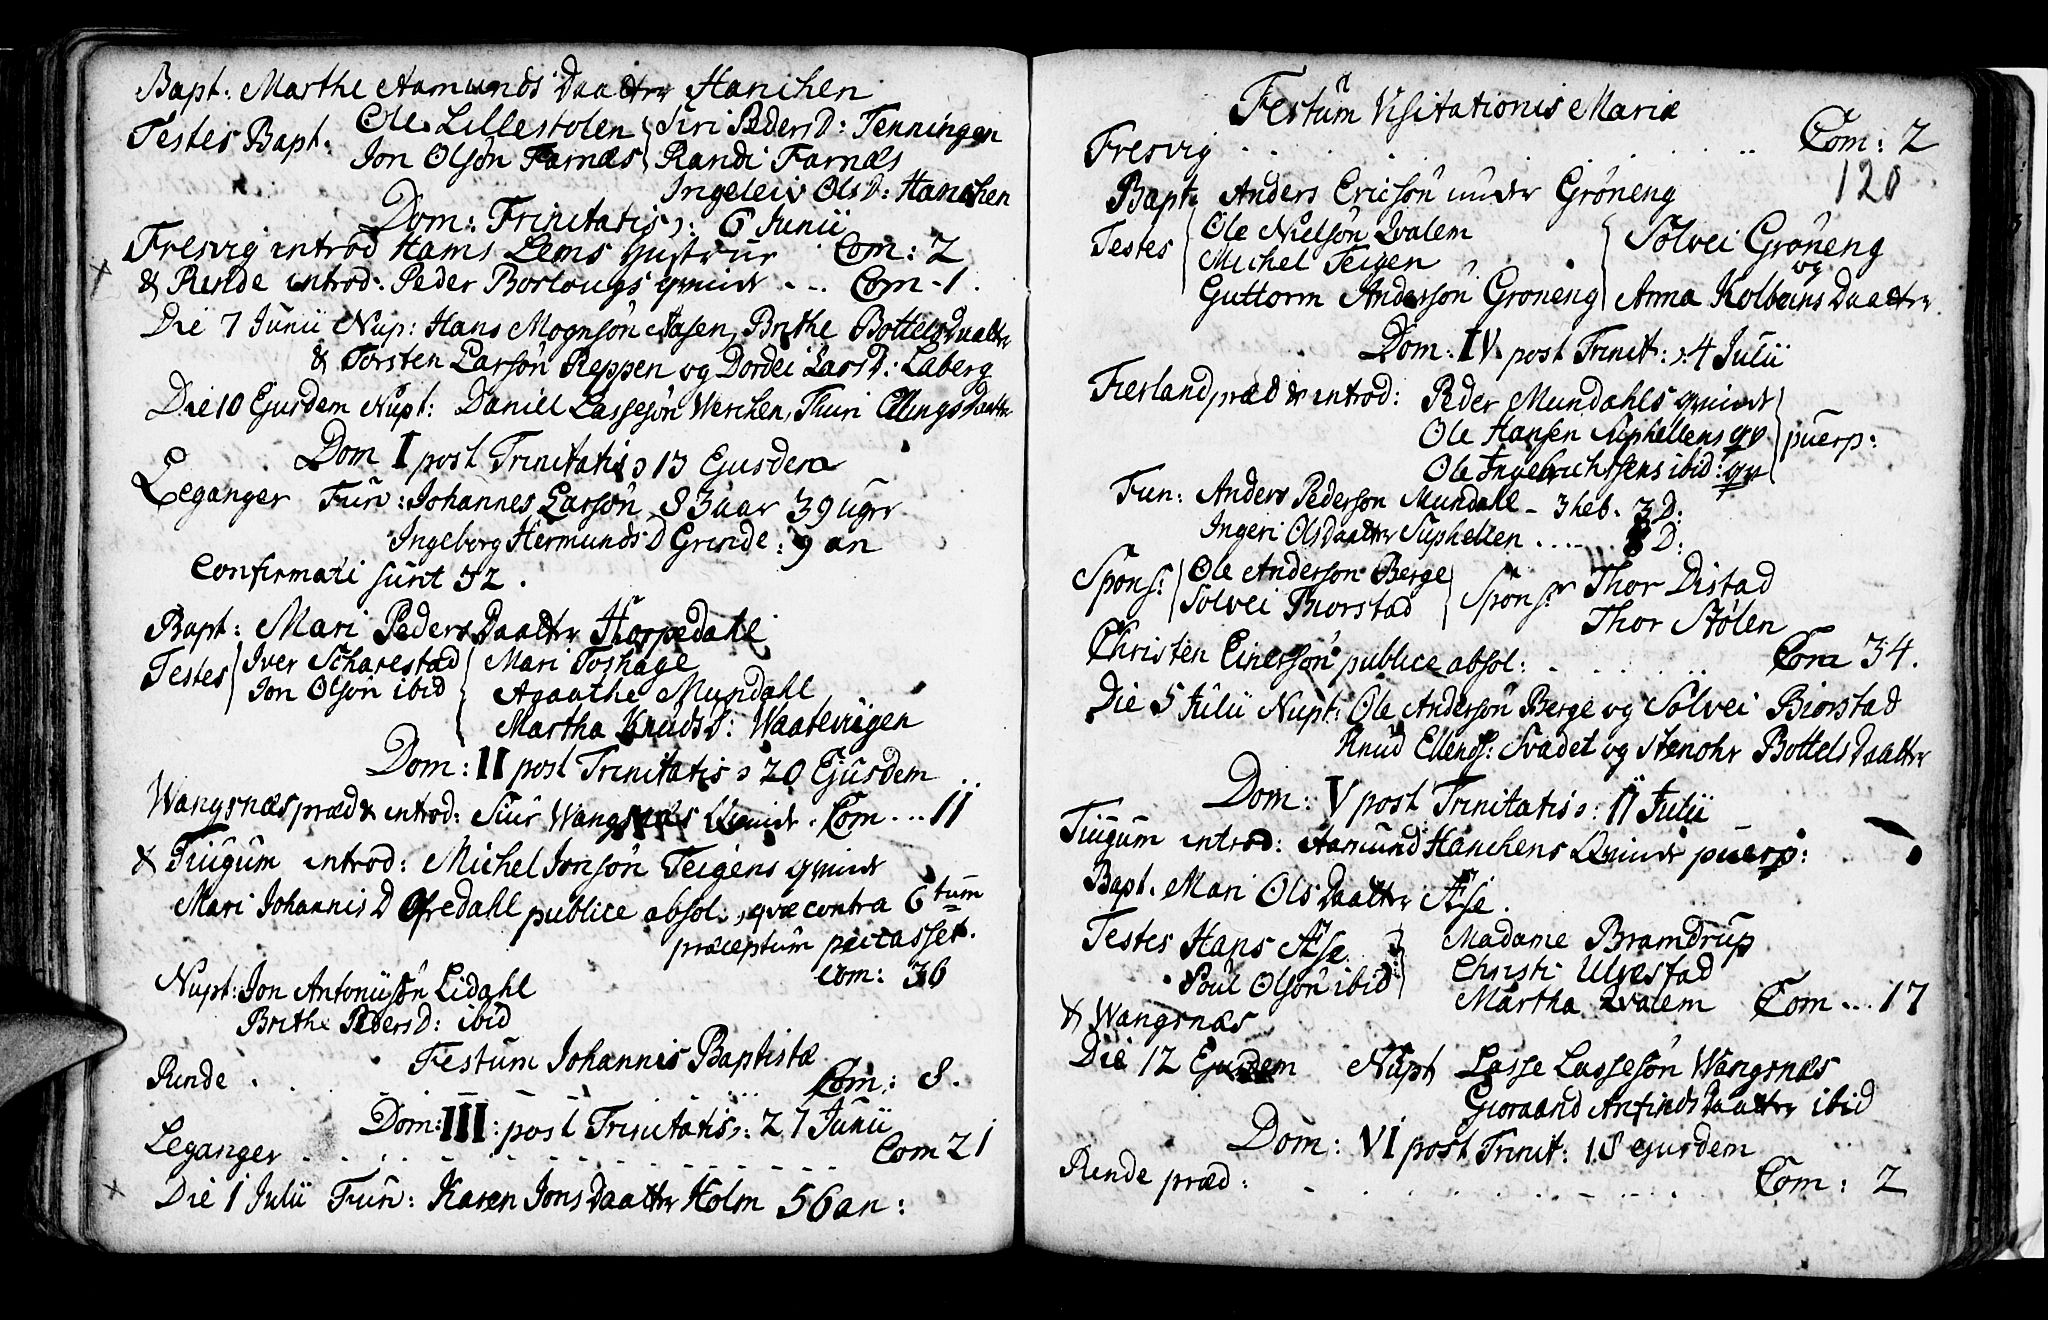 Bapt: Marthe Aamunds Daatter Hanchen
Testes Bapt. Ole Lillestolen Siri PedersD: Tenningen
Jon Olsön Farnæs Randi Farnæs
Ingeleiv OlsD: Hanchen
Dom: Trinitatis: 6 Junii
Fresvig introd Hams Lems Hustrue Com: 2
& Rinde introd: Peder Borlougs qvinde ... Com - 1.
Die 7 Junii Nup: Hans Mognsön Aasen, Brithe Bottels Daatter
& Torsten Larsön Reppen og Dordei LarsD: Laberg
Die 10 Ejusdem Nupt: Daniel Lassesön Werchen, Thuri Ellings Daatter
Dom I post Trinitatis 13 Ejusdem
Leganger Fun: Johannes Larsön 83 aar 39 uger
Ingeborg Hermunds D Grinde: 9 an
Confirmati sunt 52.
Bapt: Mari Peders Daatter Thorpedahl
Testes Iver Scharestad Mari Toshage
Jon Olsön ibid Agaathe Mundahl
Martha KnudsD: Waatevigen
Dom: II post Trinitatis 20 Ejusdem
Wangsnæs præd & introd: Siur Wangsnæs Qvinde. Com ... 11
& Tiugum introd: Michel Jonsön Teigens qvinde
Mari Johannis D Ofredahl publice absol:, qvæ contra 6tum
præceptum peccasset.
Com: 36
Nupt: Jon Antoniisön Lidahl
Brithe PedersD: ibid
Festum Johannis Baptistæ
Rinde . . . Com: 8.
Dom: III: post Trinitatis: 27 Junii
Leganger . . . Com 21
Die 1 Julii Fun: Karen Jons Daatter Holm 56 an:
Festum Visitationis Mariæ
Fresvig . . . Com: 2
120
Bapt. Anders Ericsön under Gröneng
Testes Ole Nielsön Qvalem Solvei Gröneng
Michel Teigen og
Guttorm Andersön Groneng Anna Kolbeins Daatter.
Dom: IV. post Trinit: 4 Julii
Fierland præd & introd: Peder Mundahls qvinde
Ole Hansen Suphellens qv puerp:
Ole Ingebrichtsens ibid: qv
Fun: Anders Pedersön Mundahl - 3 heb. 3 D:
Ingeri Olsdaatter Suphellen . . . 8 D:
Spons: Ole Anderson Berge Spons: Thor Distad
Solvei Biorstad Thor Stølen
Christen Einersön publice absol: . . . Com 34.
Die 5 Julii Nupt: Ole Andersön Berge og Solvei Biorstad
Knud Ellends: Svadet og Stenohr Bottels Daatter
Dom: V post Trinitatis: 11 Julii
Tiugum introd: Aamund Hanchens Qvinde puerp:
Bapt. Mari Ols Daatter Æse.
Testes Hans Æse Madame Bramdrup
Poul Olsön ibid Christi Ulvestad
Martha Qvalem Com ... 17
& Wangsnæs
Die 12 Ejusdem Nupt Lasse Lassesön Wangsnæs
Gioraand Anfinds Daatter ibid
Dom: VI post Trinit: 18 ejusdem
Rinde præd: . . . Com: 2